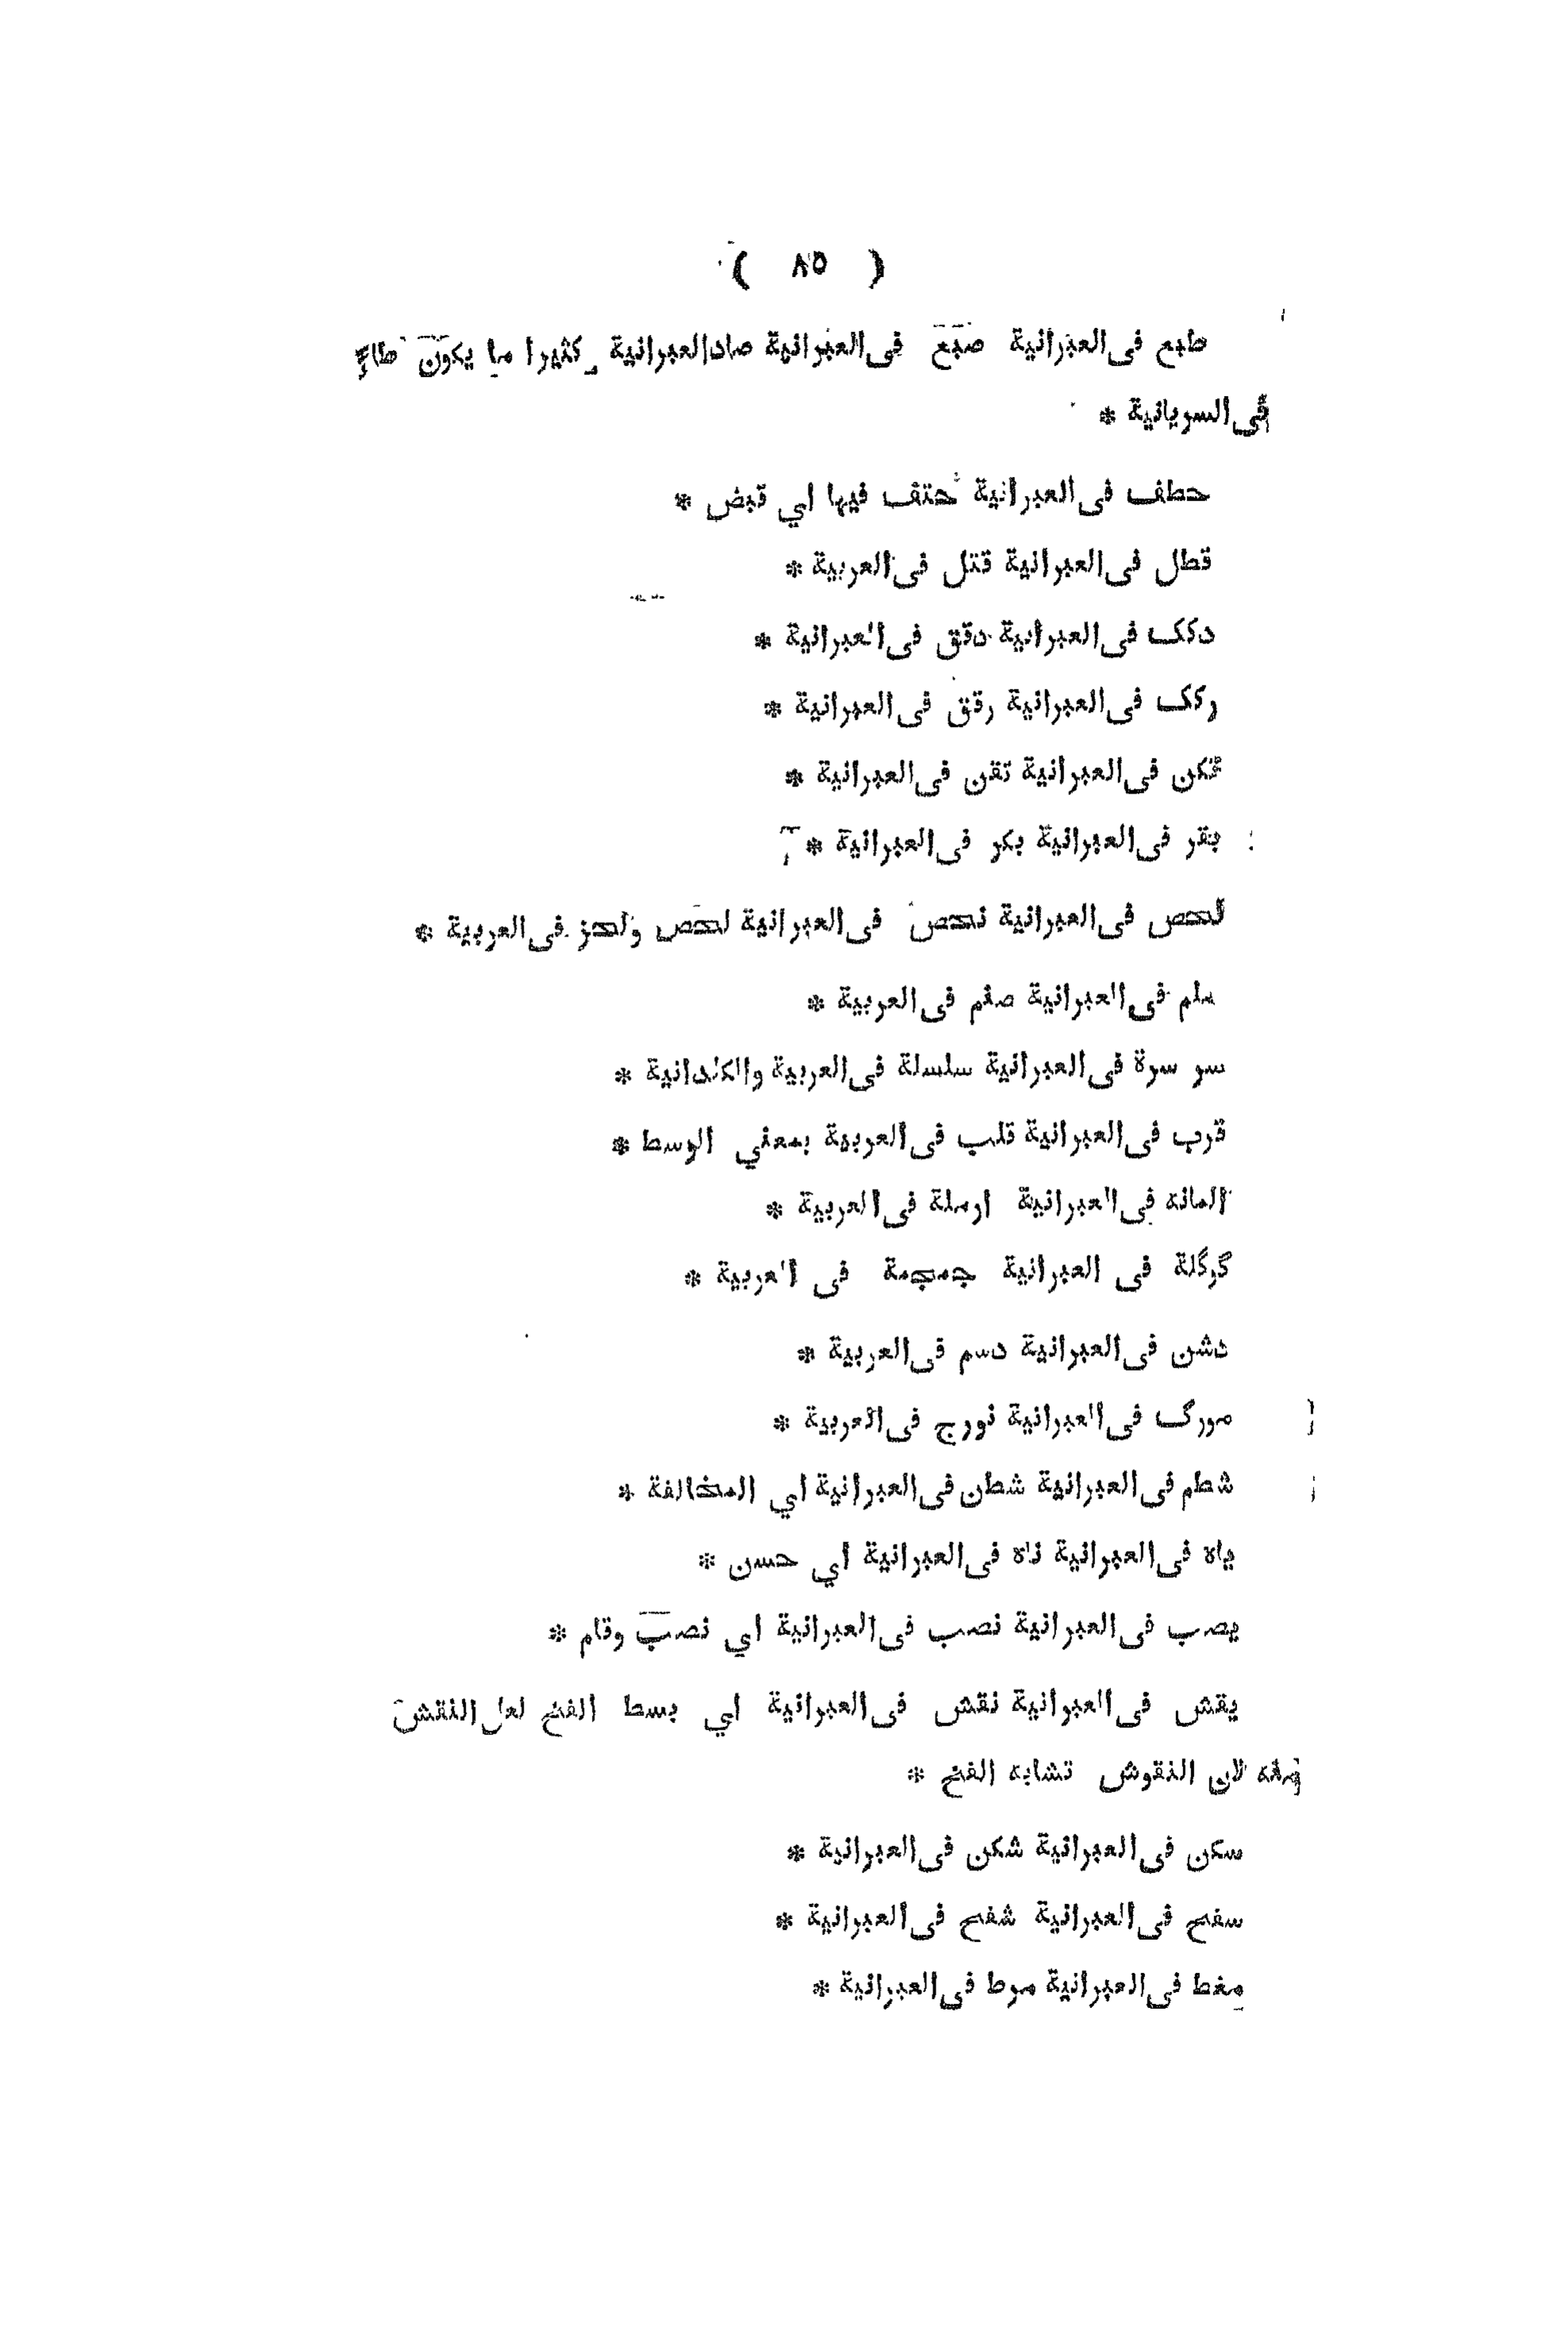 ( ٨٥ )
طبع فى العبرانية صبع فى العبرانية صاد العبرانية كثيرا ما يكون طاء
فى السريانية *
حطف فى العبرانية حتف فيها اي قبض *
قطال فى العبرانية قتل فى العربية *
دكك فى العبرانية دقق فى العبرانية *
ركك فى العبرانية رقق فى العبرانية *
تكن فى العبرانية تقن فى العبرانية *
بقر فى العبرانية بكر فى العبرانية *
لحص فى العبرانية نحص فى العبرانية لحص ولحز فى العربية *
فى العبرانية صنم فى العربية *
سر سرة فى العبرانية سلسلة فى العربية والكلدانية *
قرب فى العبرانية قلب فى العربية بمعني الوسط *
المانه فى العبرانية ارملة فى العربية *
گرگلة فى العبرانية جمجمة فى العربية *
دشن فى العبرانية دسم فى العربية *
مورگ فى العبرانية نورج فى العربية *
شطم فى العبرانية شطن فى العبرانية اي المخالفة *
ياه فى العبرانية ناه فى العبرانية اي حسن *
يصب فى العبرانية نصب فى العبرانية اي نصب وقام *
يقش فى العبرانية نقش فى العبرانية اي بسط الفخ لعل النقش
منه لان النقوش تشابه الفخ *
سكن فى العبرانية شكن فى العبرانية *
سفح فى العبرانية شفح فى العبرانية *
مغط فى العبرانية موط فى العبرانية *